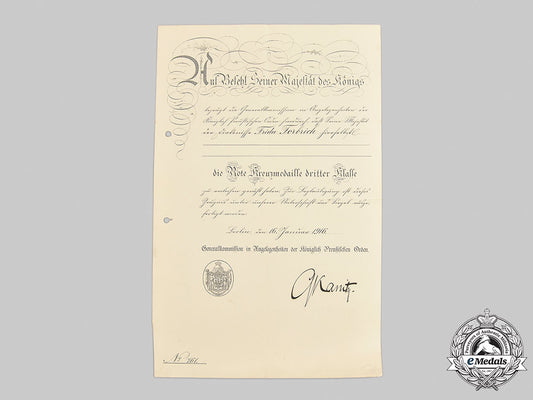 Auf Befehl Seiner Majestät des Königs
bezeugt die Generalkommission in Angelegenheiten der
Königlich Preußischen Orden hierdurch daß Seine Majestät
der Frida Forbrich
die Rote Kreuzmedaille dritter Klasse
zu verleihen geruht haben. Zur Beglaubigung ist dieses
Zeugnis unter unserer Unterschrift und Siegel ausge-
fertigt worden.
Berlin den 16. Januar 1916.
Generalkommission in Angelegenheiten der Königlich Preußischen Orden.
No
eMedals